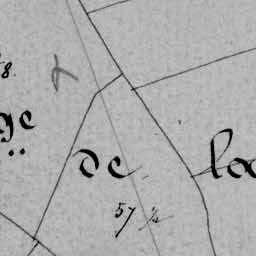 8.
ge
de la
57 ½